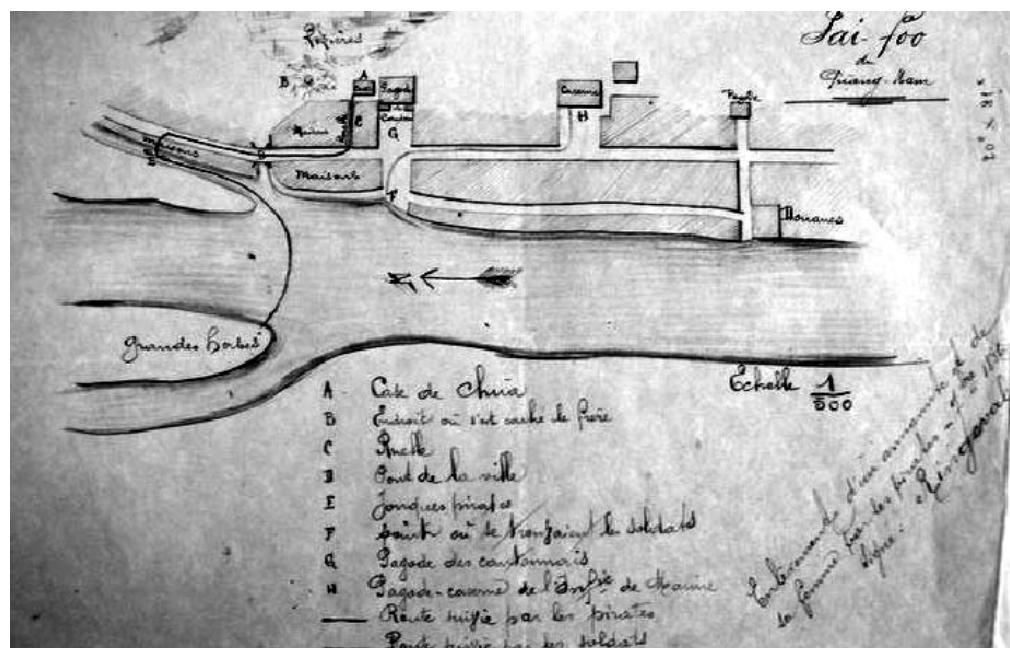 Fai-foo
de
Quang-Nam
Rizières
B
A
Pagode
Caserne
H
C
G
Maisons
Maisons
F
Douanes
Grandes herbes
Echelle 1/500
A Case de Chuïa
B Endroit où s'est caché le frère
C Ruelle
D Pont de la ville
E Jonques pirates
F Points où se trouvaient les soldats
G Pagode des cantonnais
H Pagode-caserne de l'Infie de Marine
Route suivie par les pirates
Route suivie par les soldats
Enlèvement d'un annamite et de
sa femme par les pirates
signé: